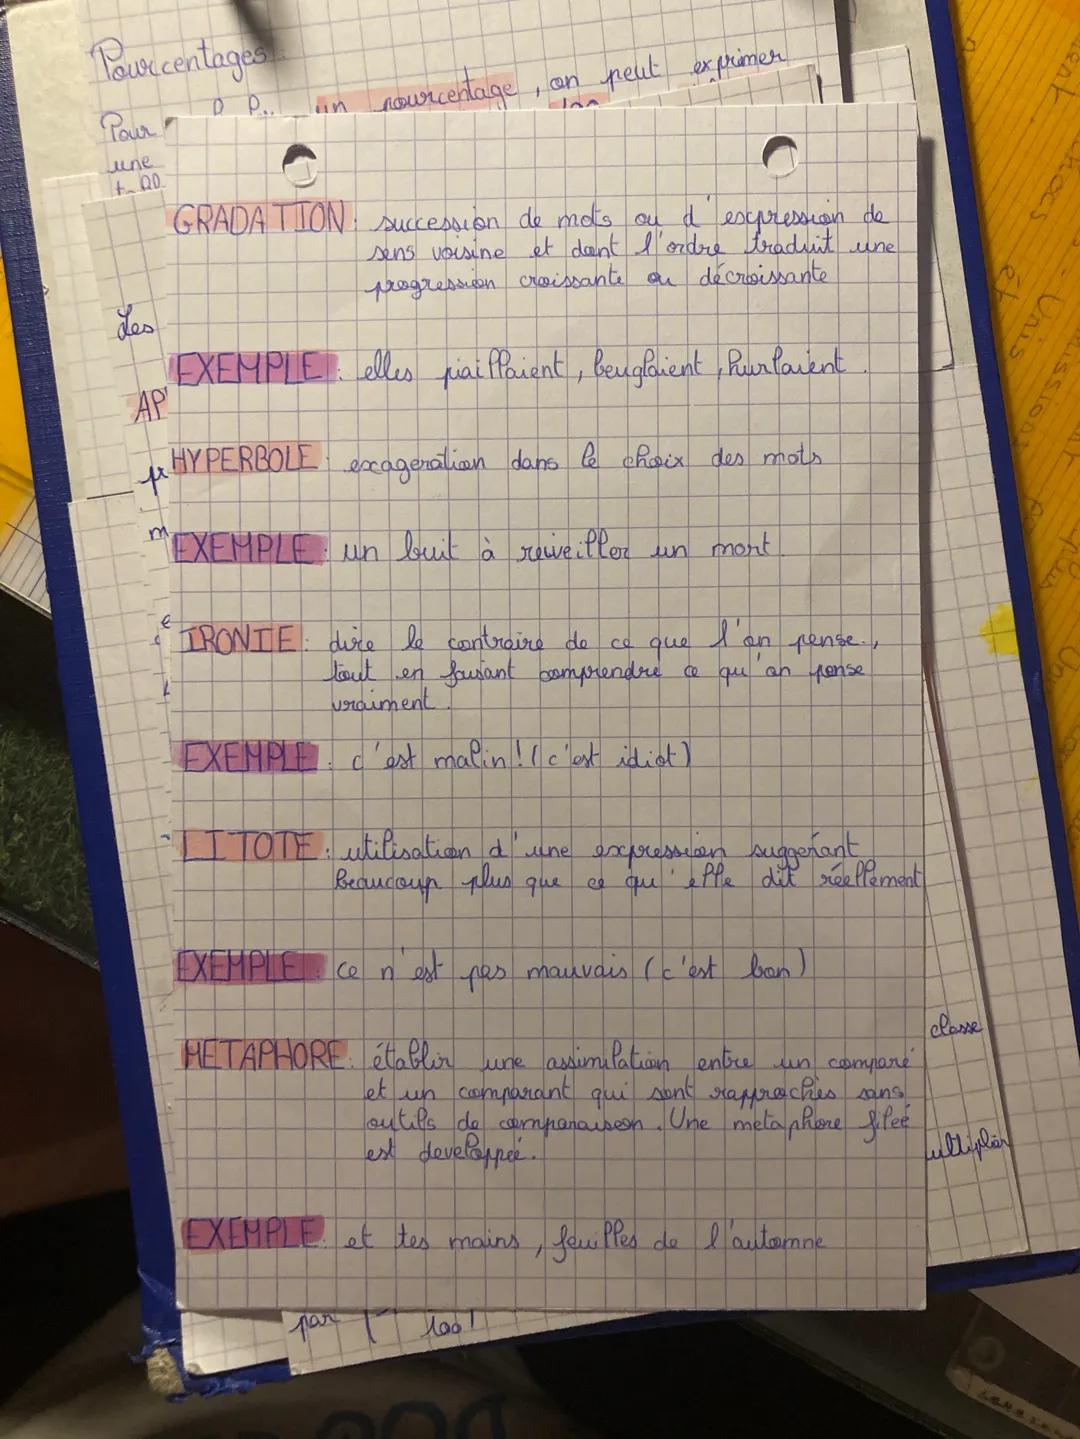 Pourcentages
Pour un pourcentage, on peut exprimer
une
Les
GRADATION: succession de mots ou d'expression de
sens voisine et dont l'ordre traduit une
progression croissante ou décroissante
EXEMPLE: elles piaillaient, beuglaient, hurlaient.
HYPERBOLE: exageration dans le choix des mots
EXEMPLE: un buit à reiveiller un mort.
IRONIE: dire le contraire de ce que l'on pense.,
tout en faisant comprendre ce qu'on pense
vraiment.
EXEMPLE: c'est malin! (c'est idiot)
LITOTE: utilisation d'une expression suggérant
beaucoup plus que ce qu'elle dit réellement
EXEMPLE: ce n'est pas mauvais (c'est bon)
classe
METAPHORE: établir une assimilation entre un comparé
et un comparant qui sont rapprochés sans
outils de comparaiseon. Une metaphore fileé
est developpée.
EXEMPLE: et tes mains, feuilles de l'automne
par 100!